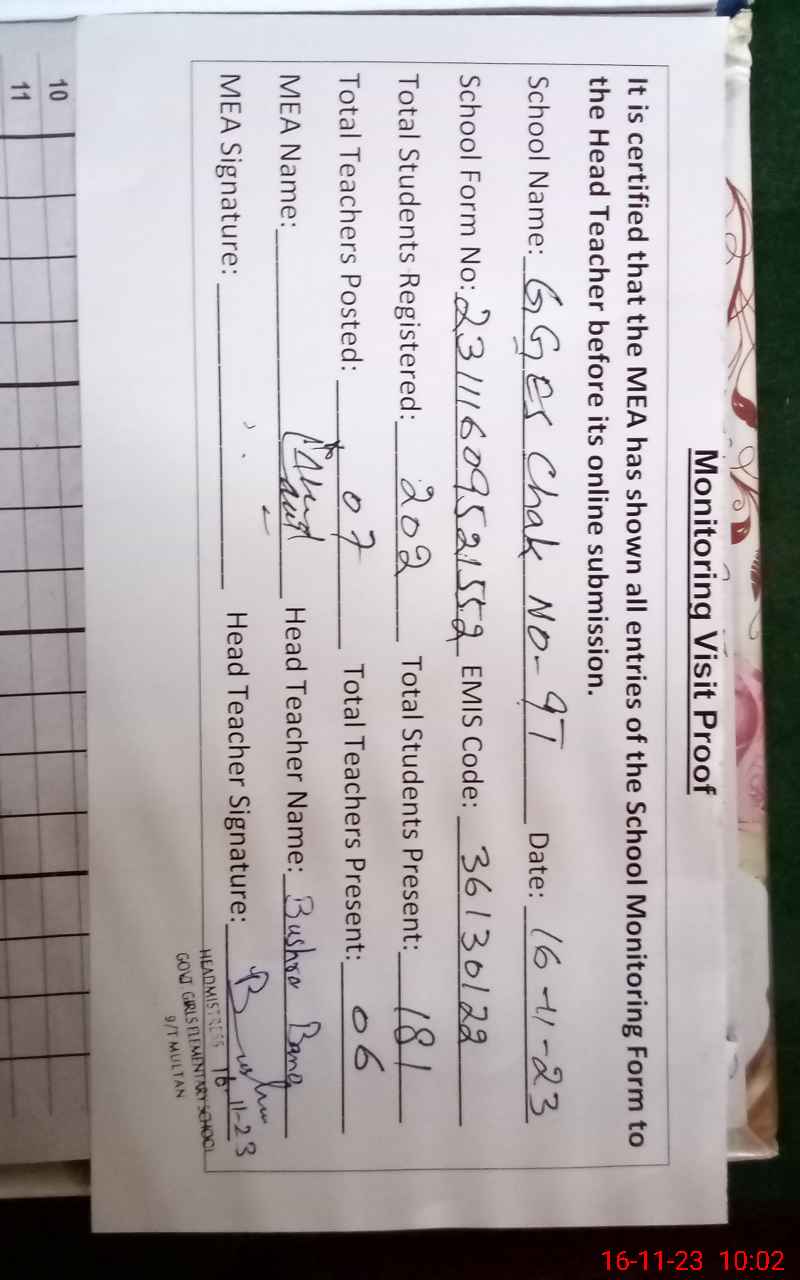 Monitoring Visit Proof
It is certified that the MEA has shown all entries of the School Monitoring Form to
the Head Teacher before its online submission.
School Name: GGES Chak NO-9T Date: 16-11-23
School Form No: 23111609521552 EMIS Code: 36130122
Total Students Registered: 202 Total Students Present: 181
Total Teachers Posted: 07 Total Teachers Present: 06
MEA Name: Head Teacher Name: Bushra Bano
MEA Signature: Head Teacher Signature: Bushra
16-11-23
HEADMISTRESS
GOVT GIRLS ELEMENTARY SCHOOL
9/T MULTAN
10
11
16-11-23 10:02